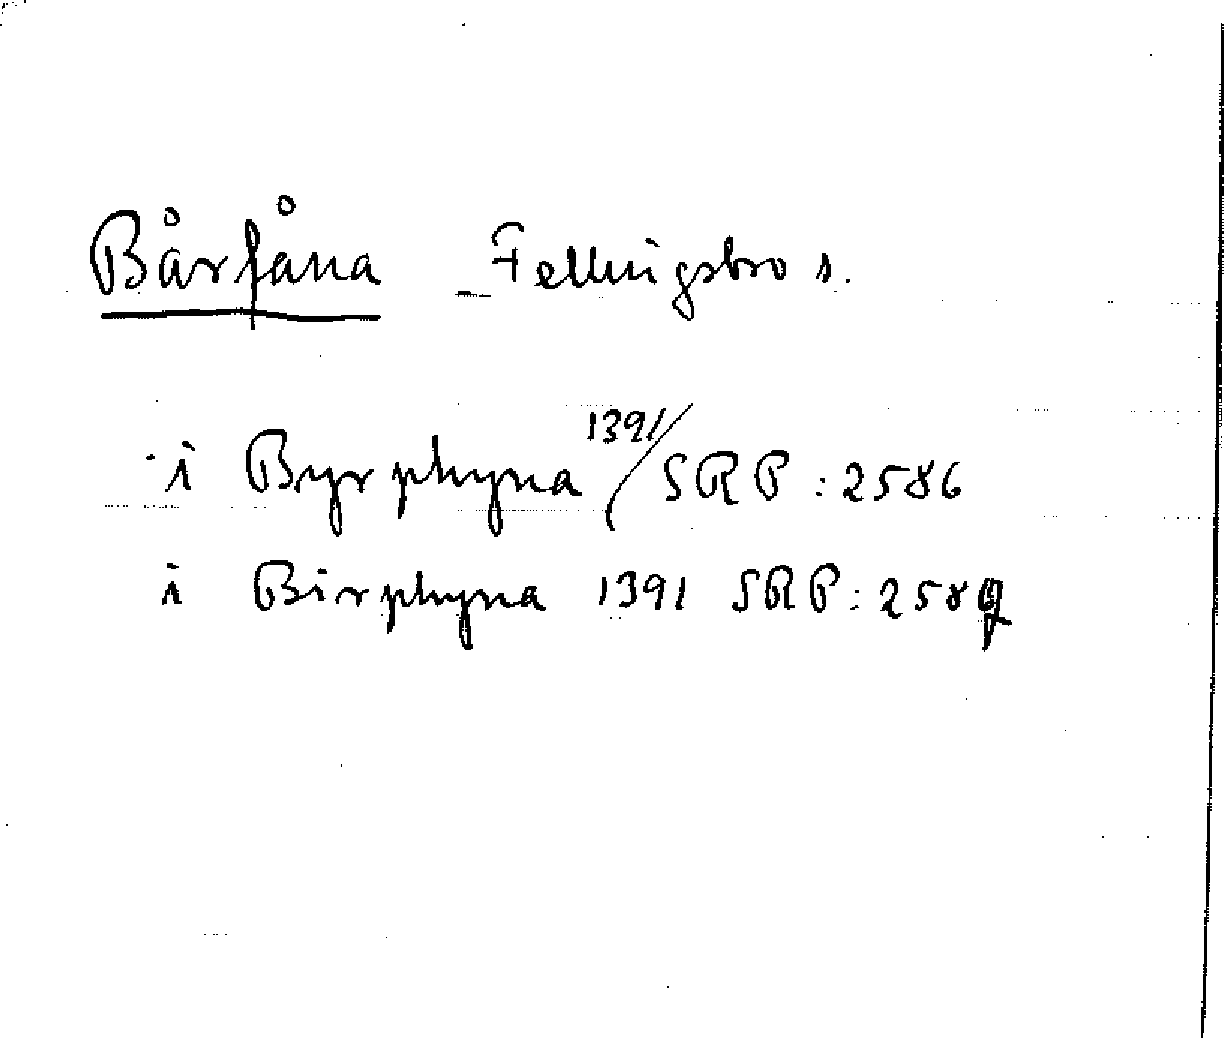 Bårfåna Fellingsbro s.
i Byrphyna 1391 SRP: 2586
i Birphyna 1391 SRP: 2589